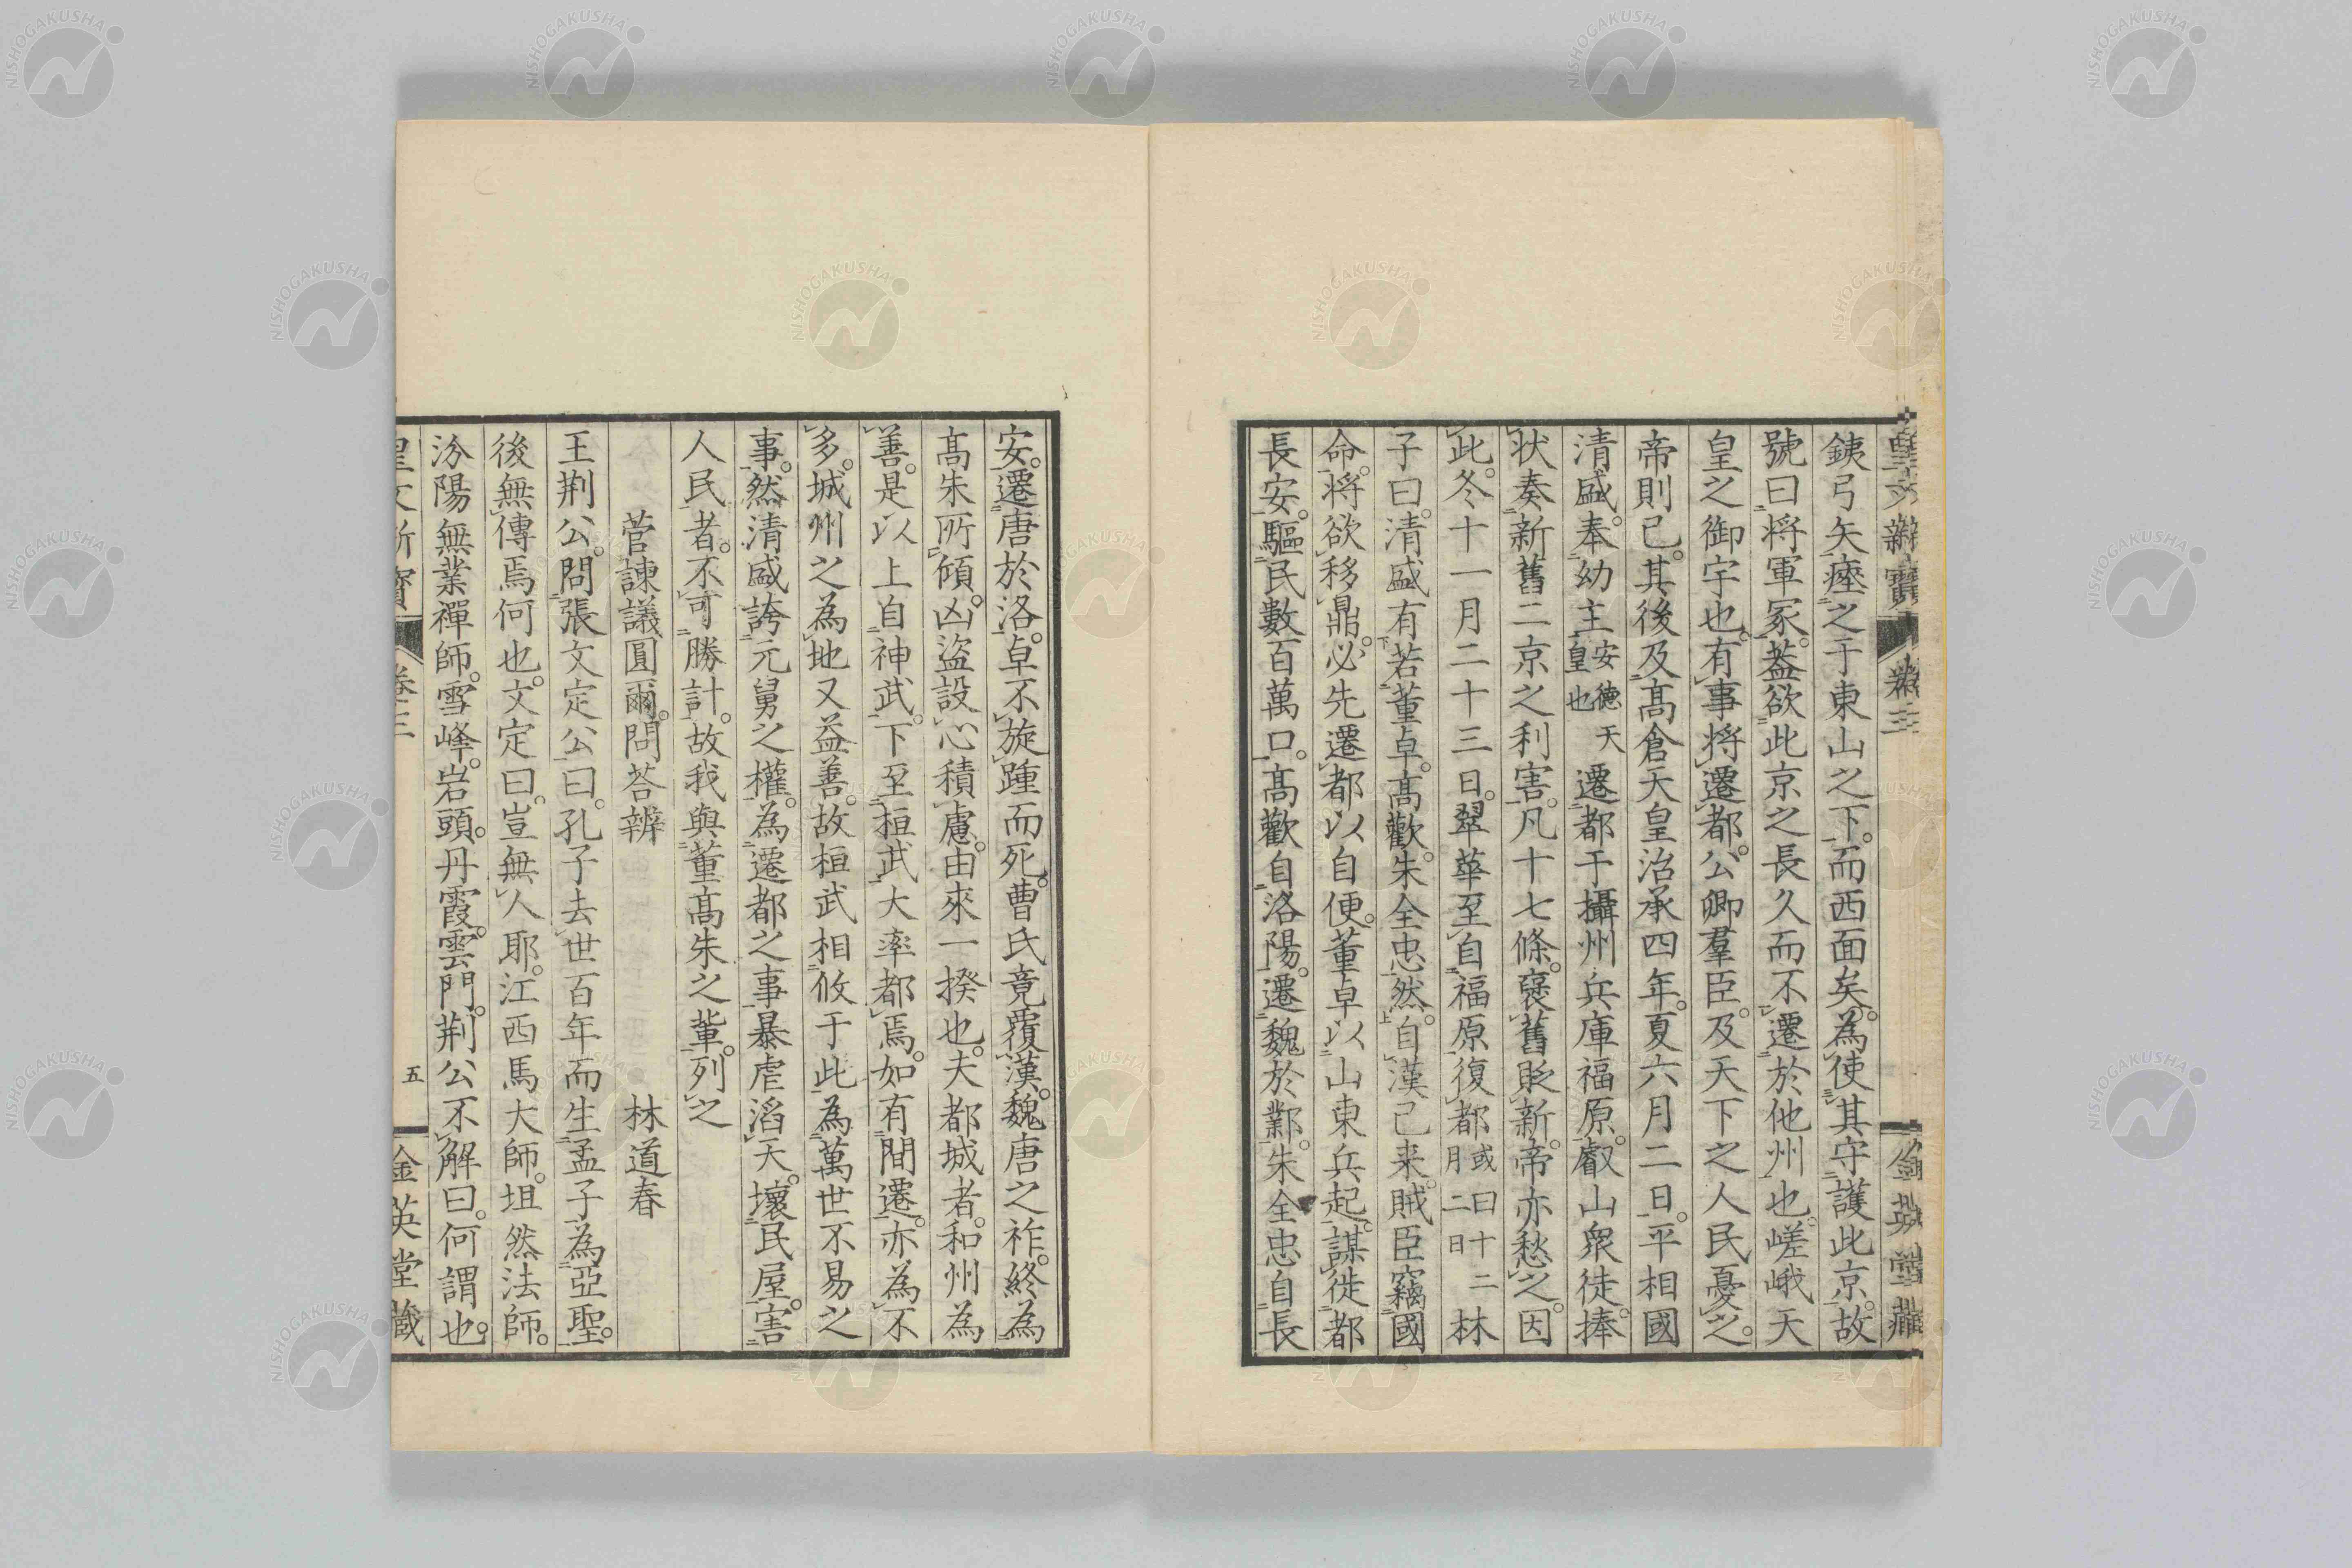 皇文新寶 卷三 金英堂藏
銕弓矢瘞之于東山之下。而西面矣。為使其守護此京。故
號曰将軍冢。葢欲此京之長久而不遷於他州也。嵯峨天
皇之御宇也。有事将遷都。公卿羣臣。及天下之人民憂之。
帝則已。其後及髙倉天皇治承四年。夏六月二日。平相國
清盛奉幼主安德天皇也遷都于攝州兵庫福原。叡山衆徒捧
状奏新舊二京之利害。凡十七條。襃舊貶新。帝亦愁之。因
此。冬十一月二十三日。翠華至自福原復都或曰十二月二日林
子曰。清盛有若董卓。髙歡。朱全忠然。自漢已来。賊臣竊國
命。将欲移鼎。必先遷都以自便。董卓以山東兵起。謀徙都
長安。驅民數百萬口。髙歡自洛陽。遷魏於鄴。朱全忠自長
安。遷唐於洛。卓不旋踵而死。曹氏竟覆漢。魏唐之祚。終為
髙朱所傾。凶盜設心積慮。由來一揆也。夫都城者。和州為
善。是以上自神武。下至桓武。大率都焉。如有間遷。亦為不
多。城州之為地又益善。故桓武相攸于此。為萬世不易之
事。然清盛誇元舅之權。為遷都之事。暴虐滔天。壞民屋。害
人民者。不可勝計。故我與董髙朱之軰。列之
菅諫議圓爾問答辨 林道春
王荆公。問張文定公曰。孔子去世百年而生孟子為亞聖。
後無傳焉何也。文定曰。豈無人耶。江西馬大師。坦然法師。
汾陽無業禪師。雪峰。岩頭。丹霞。雲門。荆公不解曰。何謂也。
皇文新寶 卷三 五 金英堂藏